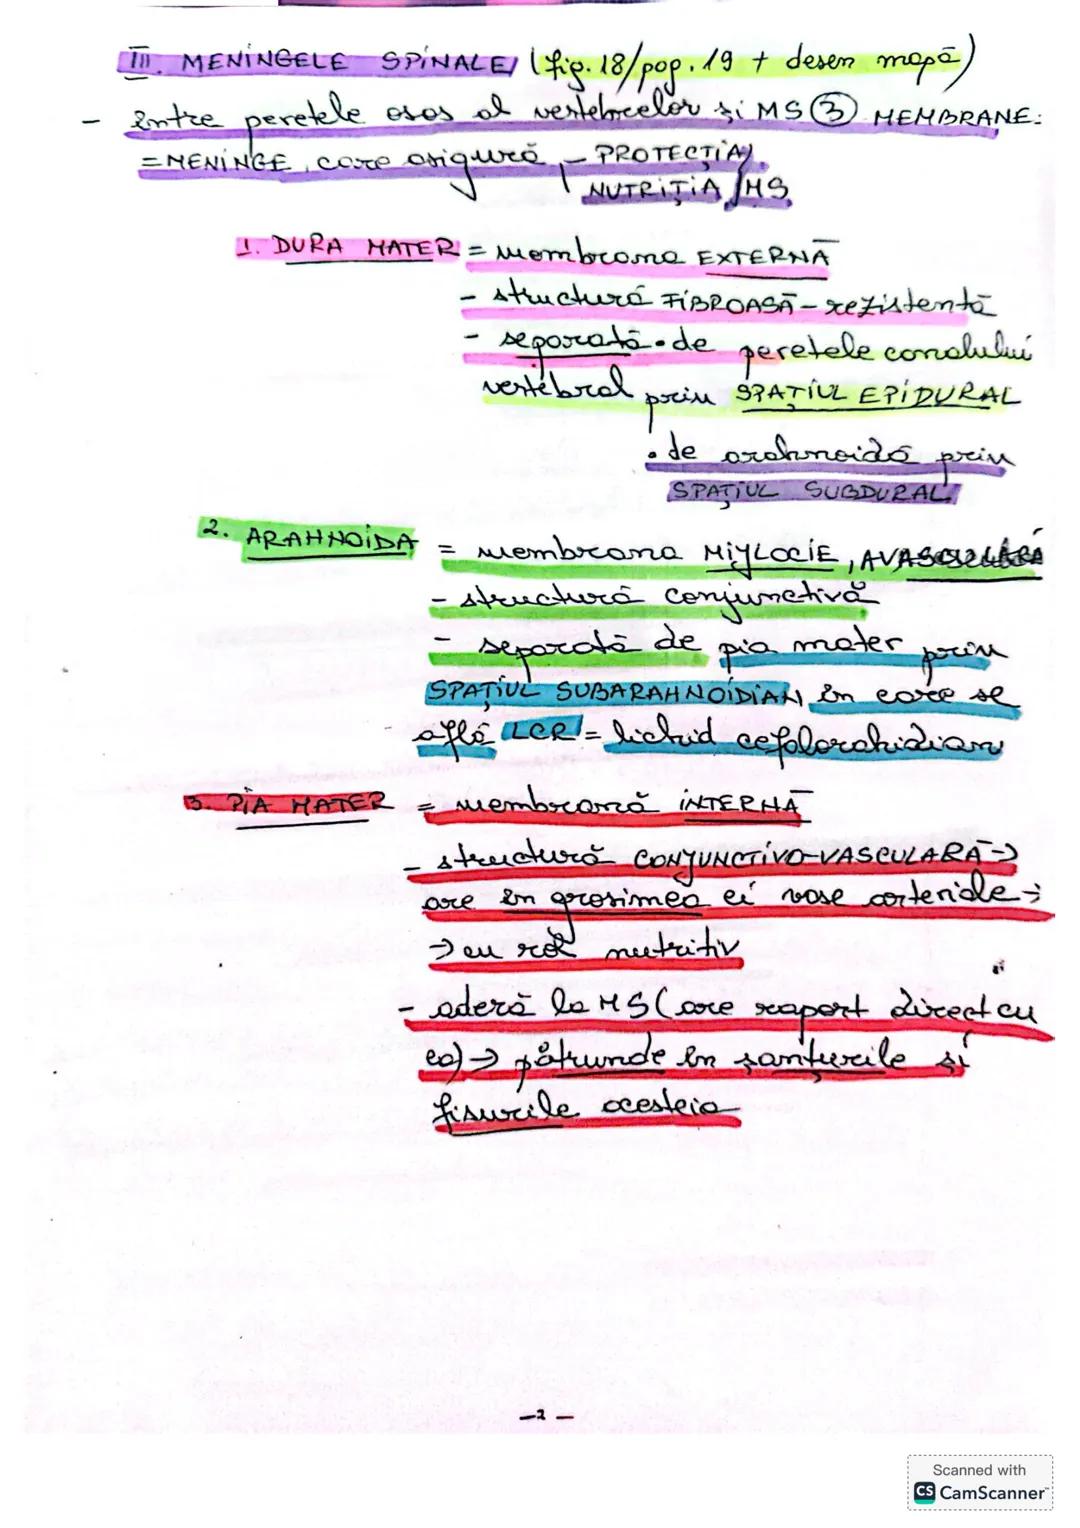 III. MENINGELE SPINALE (fig. 18/pag. 19 + desen mapă)
- între peretele osos al vertebrelor și MS ③ MEMBRANE:
= MENINGE, care asigură - PROTECȚIA
NUTRIȚIA MS
1. DURA MATER = membrana EXTERNĂ
- structură FIBROASĂ - rezistentă
- separată • de peretele canalului
vertebral prin SPAȚIUL EPIDURAL
• de arahnoidă prin
SPAȚIUL SUBDURAL
2. ARAHNOIDA = membrana MIJLOCIE, AVASCULARĂ
- structură conjunctivă
- separată de pia mater prin
SPAȚIUL SUBARAHNOIDIAN în care se
află LCR = lichid cefalorahidian
3. PIA MATER = membrană INTERNĂ
- structură CONJUNCTIVO-VASCULARĂ →
are în grosimea ei vase arteriale →
→ cu rol nutritiv
- aderă la MS (are raport direct cu
ea) → pătrunde în șanțurile și
fisurile acesteia
- 2 -
Scanned with
CS CamScanner